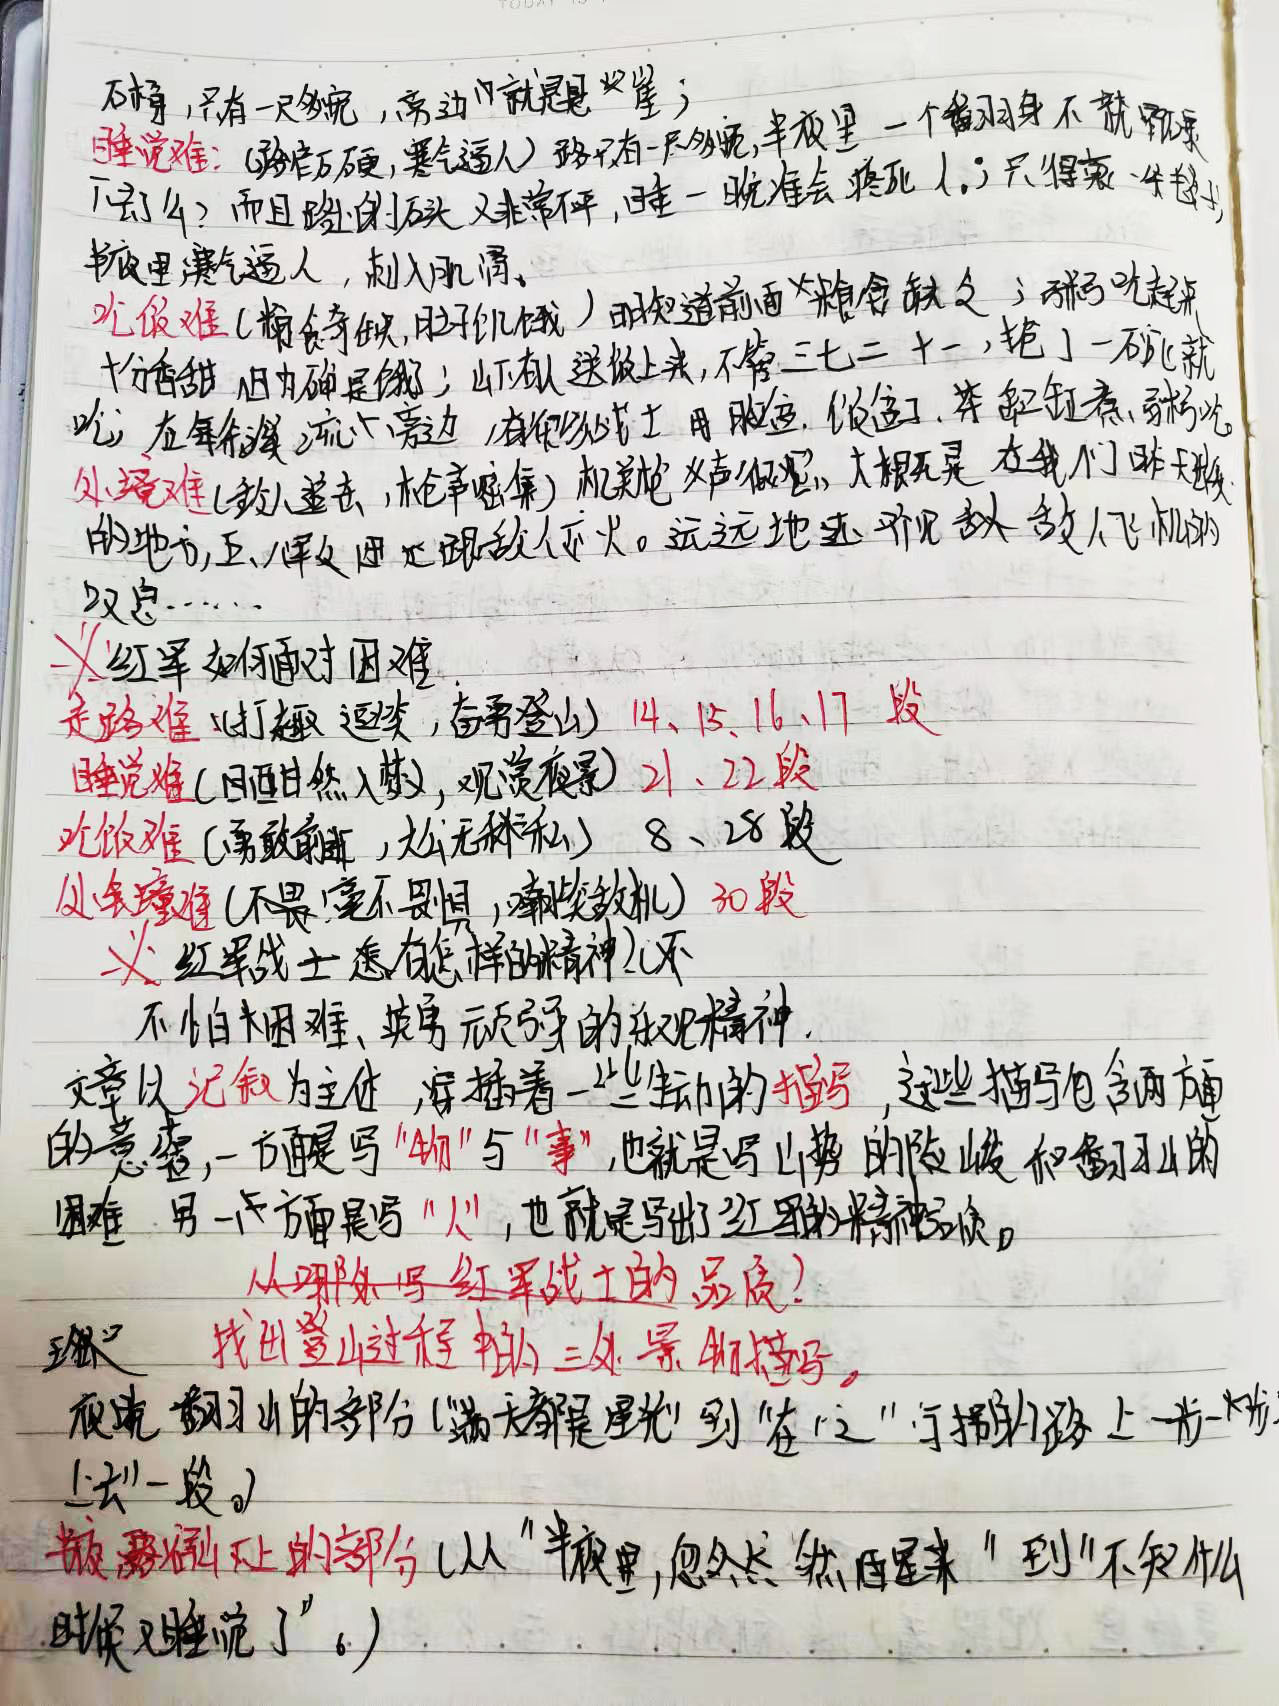 石梯，只有一尺多宽，旁边就是悬崖；
睡觉难：(路窄石硬，寒气逼人) 路只有一尺多宽，半夜里一个翻身不就
下去了么？而且路上的石头又非常不平，睡一晚准会疼死人。；只得裹一
半夜里寒气逼人，刺入肌骨。
吃饭难(粮食奇缺，肚子饥饿) 明知道前面粮食缺乏；粥吃起来
十分香甜 因为确是饿了；山下有人送饭上来，不管三七二十一，抢了一碗就
吃；在溪流旁边，有很多战士用脸盆、饭盒子、茶缸煮粥吃。
处境难(敌人追击，枪声密集) 机关枪声很密，大概是在我们昨天
的地方，五、八军团正跟敌人开火。远远地还听见敌人飞机的
叹息……
红军如何面对困难
走路难(打趣逗笑，奋勇登山) 14、15、16、17 段
睡觉难(酣然入梦，观赏夜景) 21、22段
吃饭难(勇敢前进，大公无私) 8、28段
处境难(不畏 毫不畏惧，嘲笑敌机) 30段
红军战士 有怎样的精神？不
不怕困难、英勇顽强的乐观精神.
文章以记叙为主体，穿插着一些生动的描写，这些描写包含两方面
的意思，一方面是写"物"与"事"，也就是写山势的险峻和翻山的
困难 另一方面是写"人"，也就是写出了红军的精神品质。
从哪处写红军战士的品质？
找出登山过程中的三处景物描写。
夜晚翻山的部分("满天都是星光"到"在"之"字拐的路上一步一步
上去"一段。)
半夜 的部分(从"半夜里，忽然 然醒来"到"不知什么
时候又睡觉了"。)